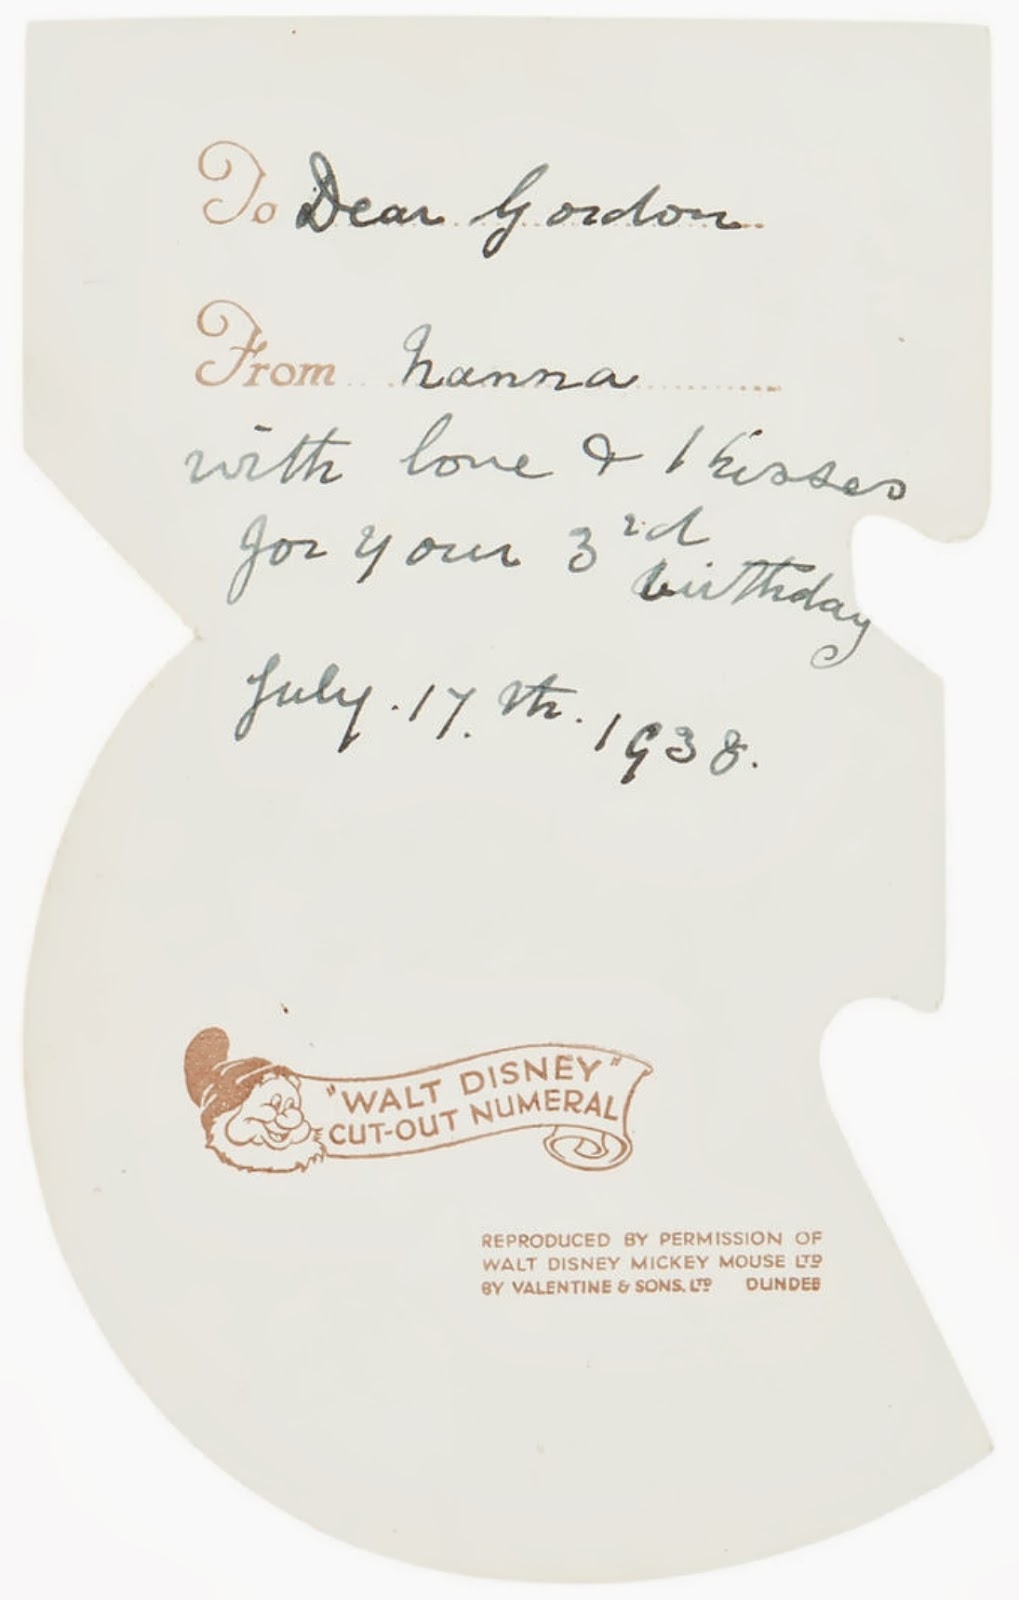 To Dear Gordon
From Nanna
with love & kisses
for your 3rd
birthday
July. 17. th. 1938.
"WALT DISNEY"
CUT-OUT NUMERAL
REPRODUCED BY PERMISSION OF
WALT DISNEY MICKEY MOUSE LTD
BY VALENTINE & SONS. LTD DUNDEE